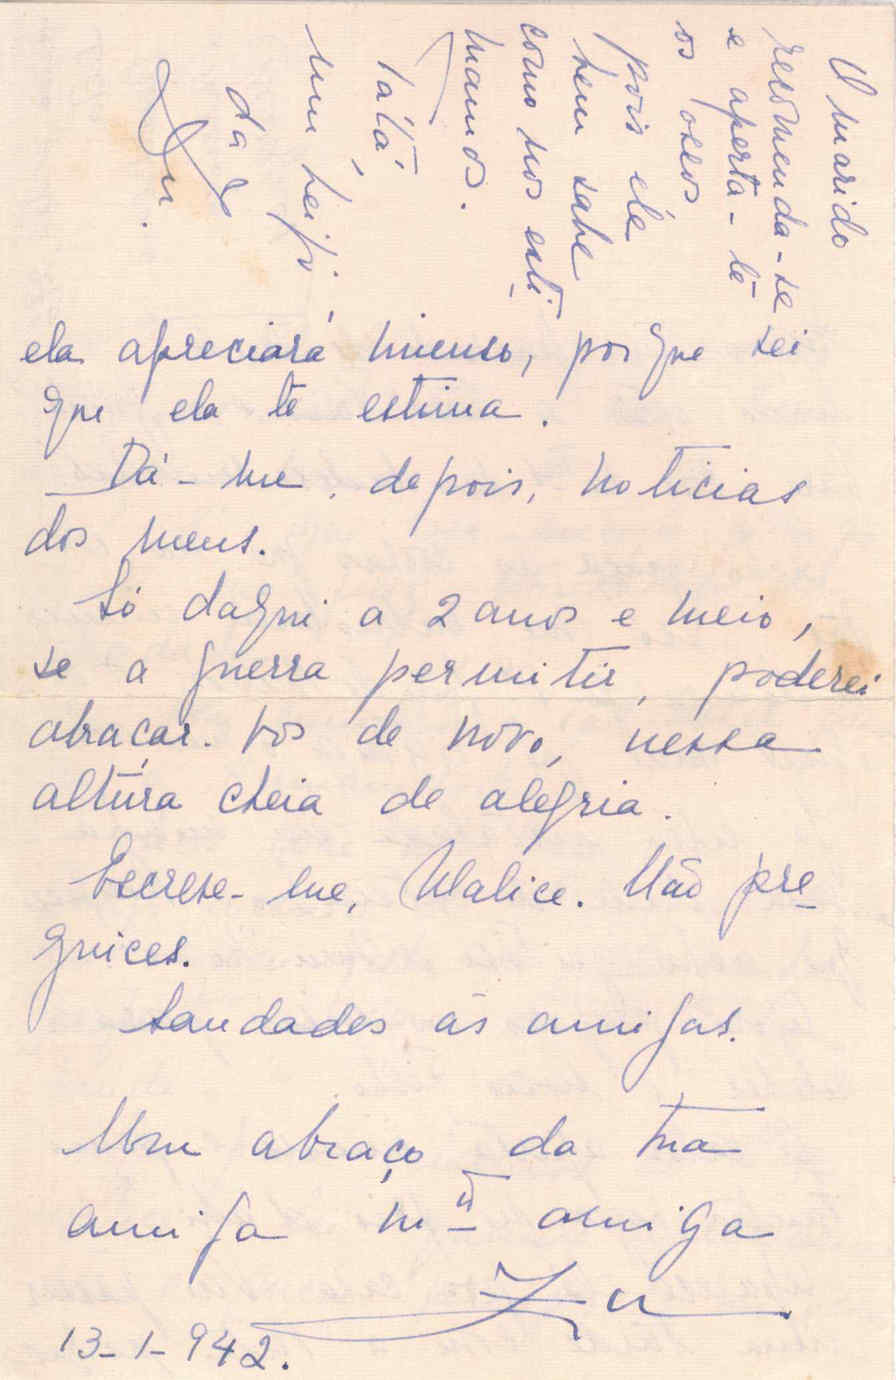 ela apreciará imenso, porque sei
que ela te estima.
Dá-me, depois, noticias
dos meus.
Só daqui a 2 anos e meio,
se a guerra permitir, poderei
abraçar-vos de novo, nessa
altúra cheia de alegria.
Escreve-me, Malice. Não pre-
guices.
Saudades às amigas.
Um abraço da tua
amiga mtº amiga
Zu
13-1-942.
O marido
recomenda-se
e aperta-te
os ossos
pois ele
bem sabe
como nos esti-
mamos.
Tátá,
um beijo
da
Zu.